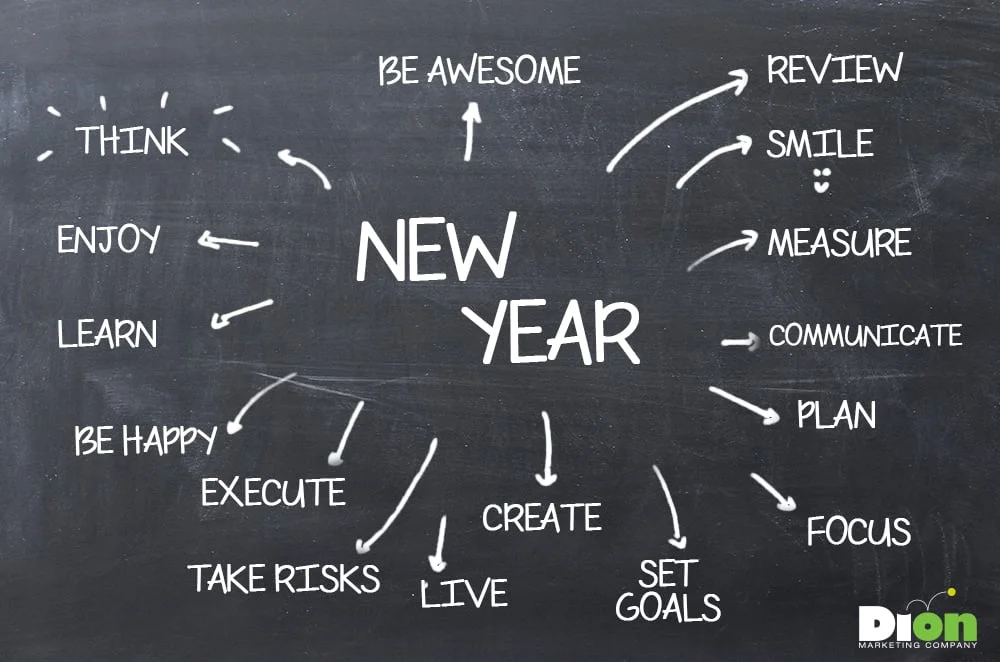 BE AWESOME
REVIEW
THINK
SMILE
ENJOY
NEW
MEASURE
YEAR
LEARN
COMMUNICATE
PLAN
BE HAPPY
EXECUTE
CREATE
FOCUS
TAKE RISKS
LIVE
SET
GOALS
Dion
MARKETING COMPANY